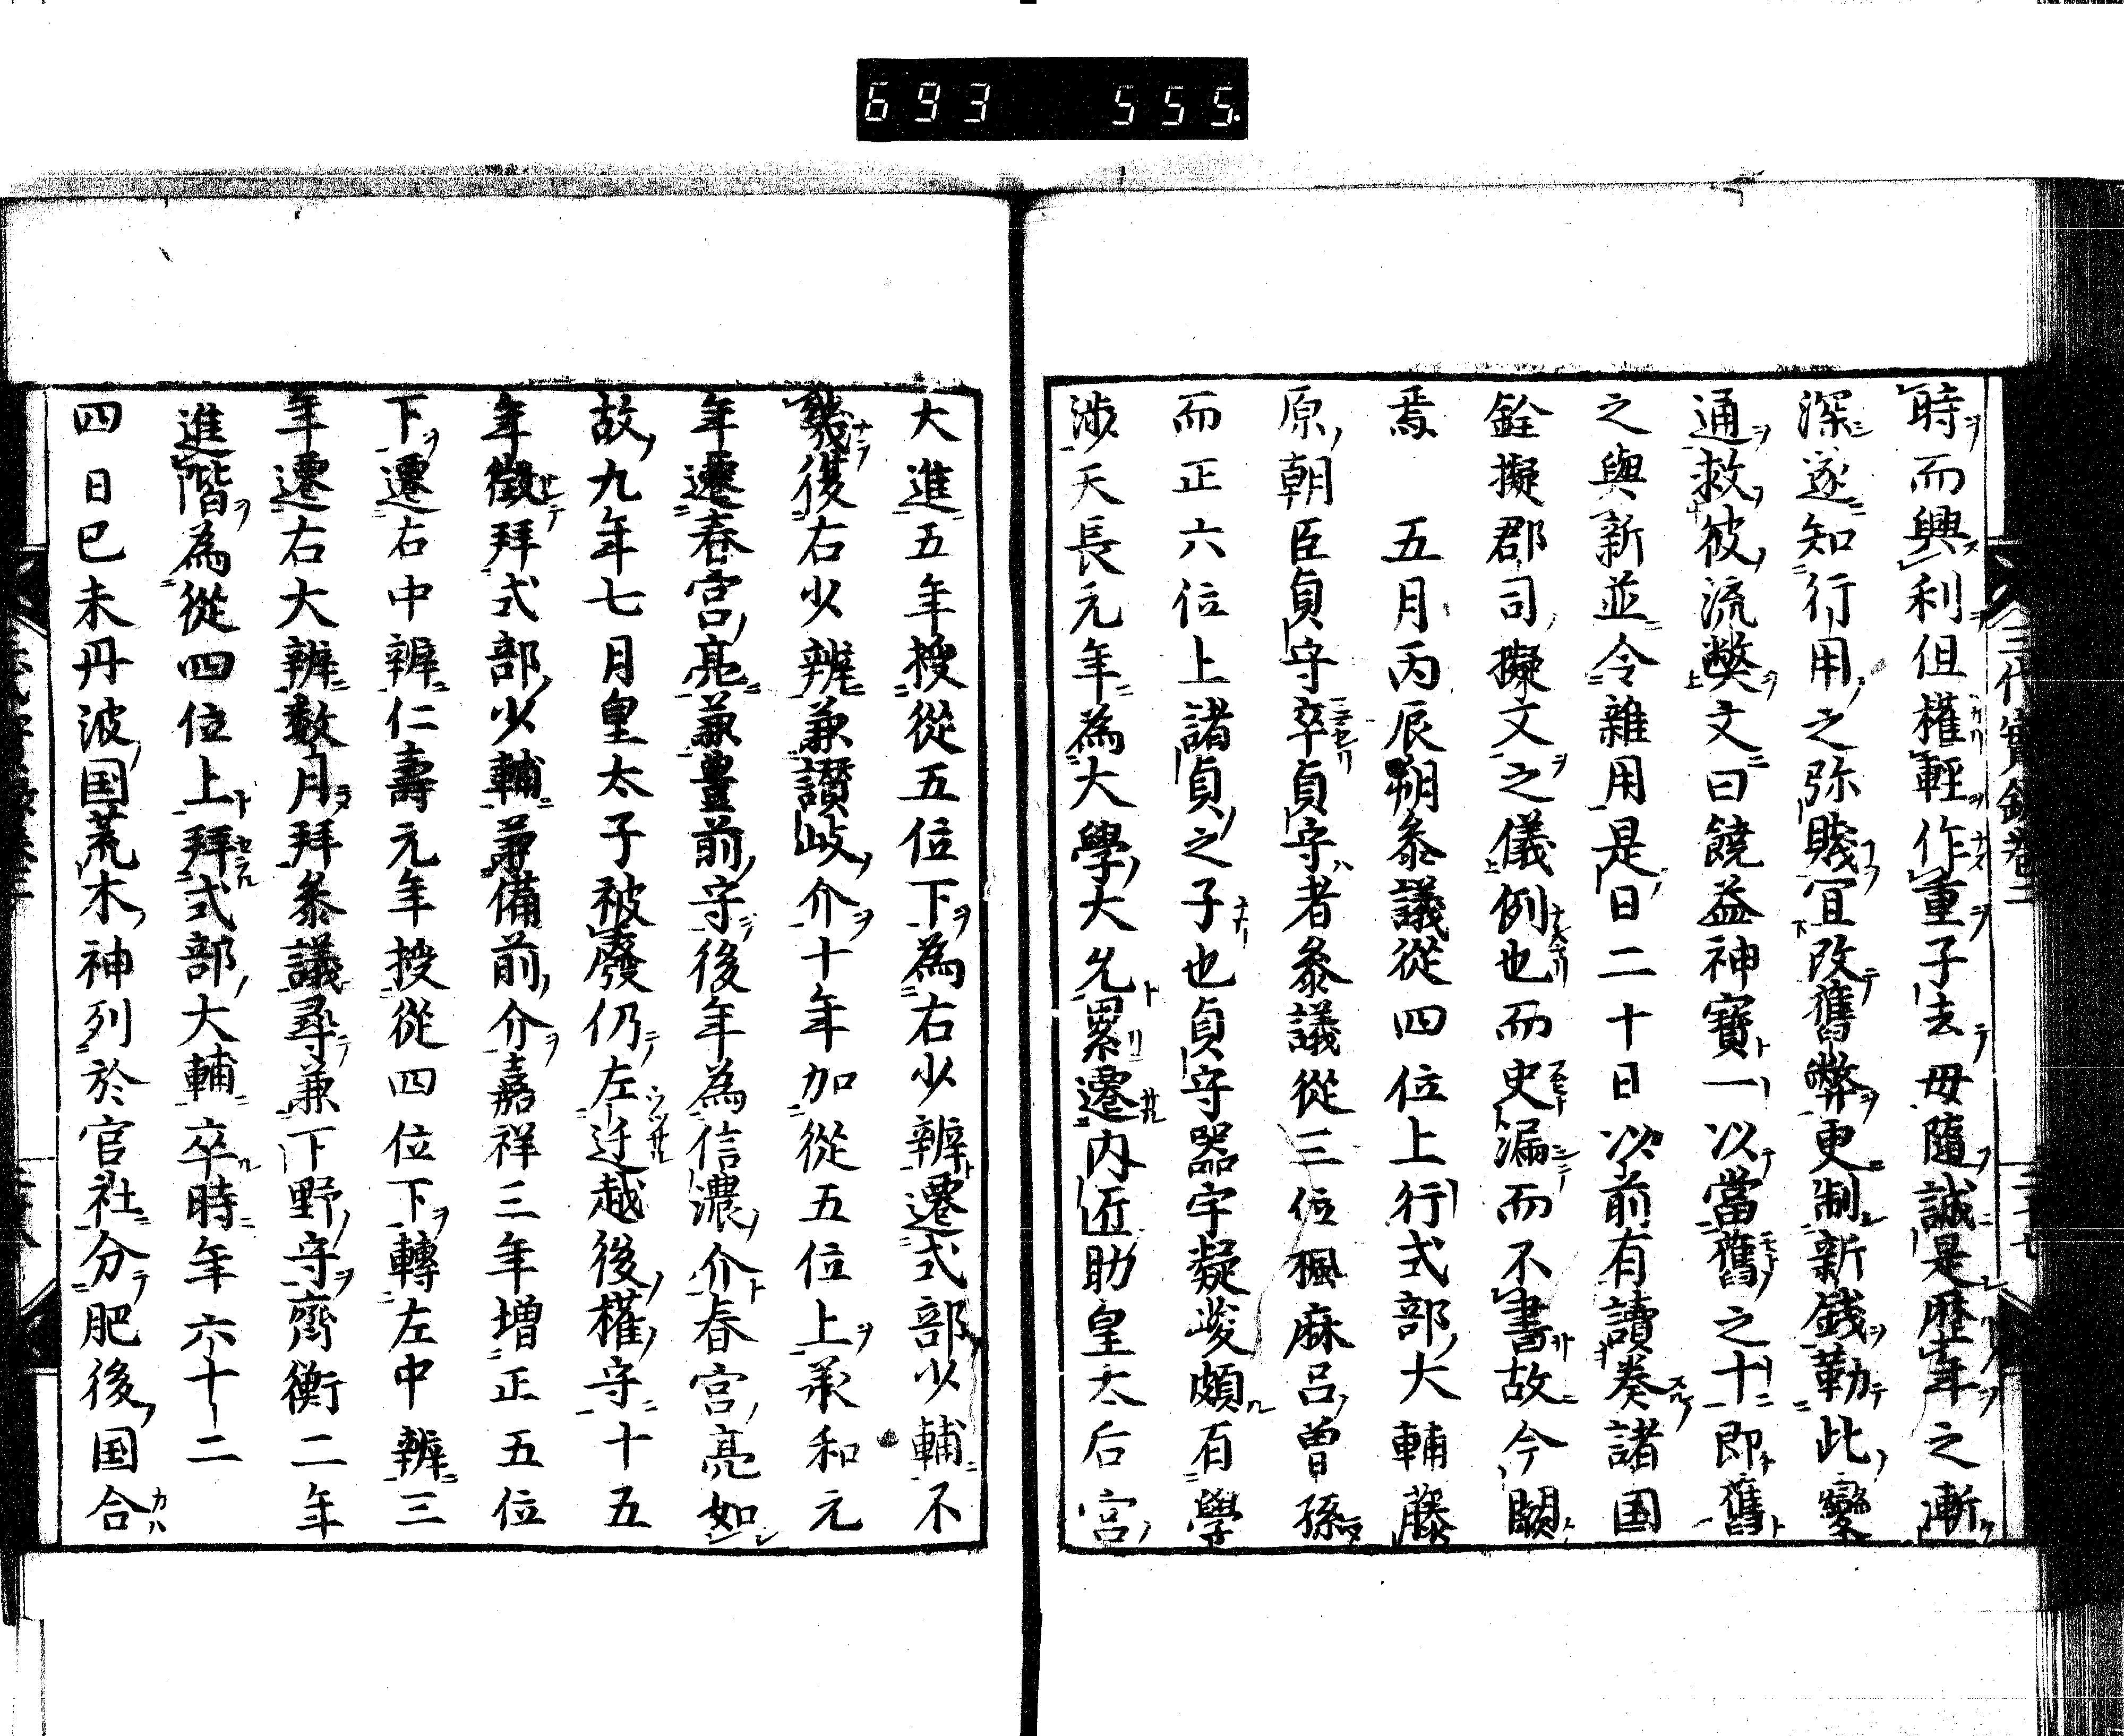 693 555.
時而興利但權輕作重子去母隨誠是歷年之漸
深遂知行用之弥賤宜改舊弊更制新錢勒此變
通救彼流弊文曰饒益神寶一以當舊之十即舊
之與新並令雜用是日二十日以前有讀奏諸国
銓擬郡司擬文之儀例也而史漏而不書故今闕
焉　五月丙辰朔叅議從四位上行式部大輔藤
原朝臣貞守卒貞守者叅議從三位楓麻呂曽孫
而正六位上諸貞之子也貞守器宇凝峻頗有學
渉天長元年為大學大允累遷内匠助皇太后宮
大進五年授從五位下為右少辨遷式部少輔不
幾復右少辨兼讃岐介十年加從五位上承和元
年遷春宮亮兼豊前守後年為信濃介春宮亮如
故九年七月皇太子被廢仍左迁越後權守十五
年徵拜式部少輔兼備前介嘉祥三年増正五位
下遷右中辨仁壽元年授從四位下轉左中辨三
年遷右大辨数月拜叅議尋兼下野守齊衡二年
進階為從四位上拜式部大輔卒時年六十二
四日巳未丹波国荒木神列於官社分肥後国合